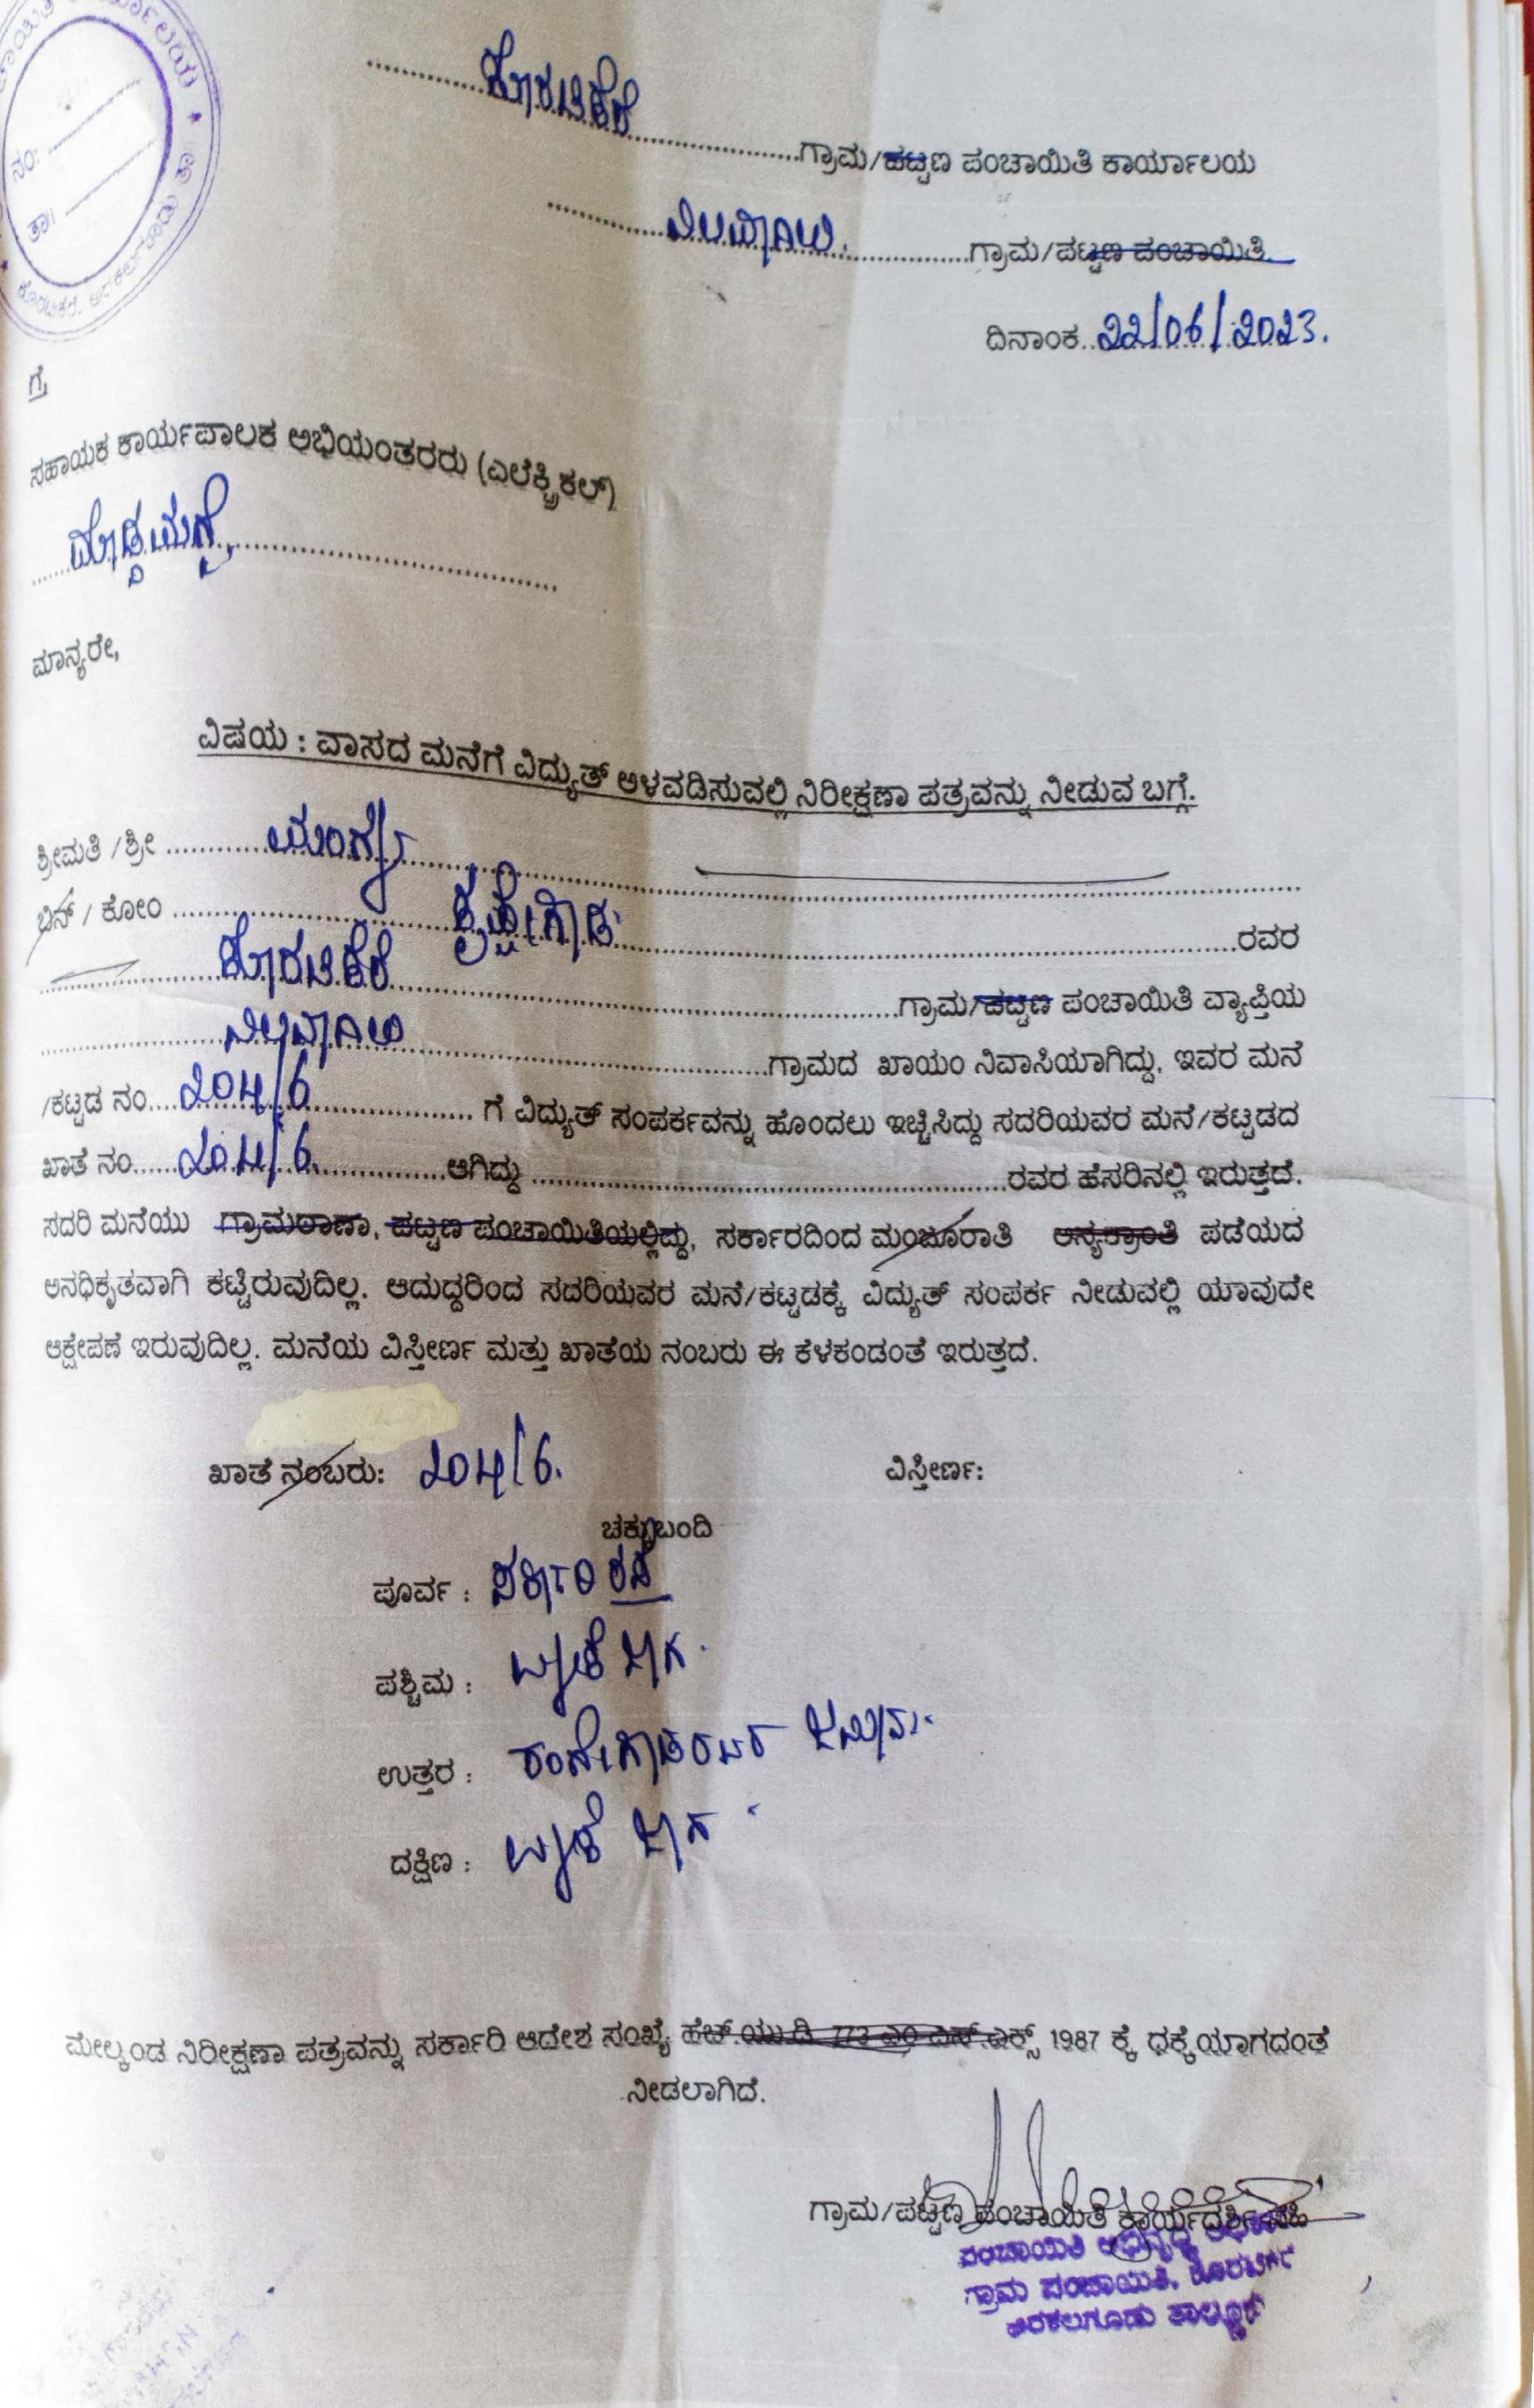 ನಂ:
ತಾ॥
ಕೊರಟಿಕೆರೆ
ಗ್ರಾಮ/ಪಟ್ಟಣ ಪಂಚಾಯಿತಿ ಕಾರ್ಯಾಲಯ
ನಿಲುವಾಗಿಲು.
ಗ್ರಾಮ/ಪಟ್ಟಣ ಪಂಚಾಯಿತಿ
ದಿನಾಂಕ 22/06/2023.
ಗೆ,
ಸಹಾಯಕ ಕಾರ್ಯಪಾಲಕ ಅಭಿಯಂತರರು (ಎಲೆಕ್ಟ್ರಿಕಲ್)
ಮಾನ್ಯರೇ,
ವಿಷಯ : ವಾಸದ ಮನೆಗೆ ವಿದ್ಯುತ್ ಅಳವಡಿಸುವಲ್ಲಿ ನಿರೀಕ್ಷಣಾ ಪತ್ರವನ್ನು ನೀಡುವ ಬಗ್ಗೆ.
ಶ್ರೀಮತಿ /ಶ್ರೀ
ಬಿನ್ / ಕೋಂ ರವರ
ಕೊರಟಿಕೆರೆ ಗ್ರಾಮ/ಪಟ್ಟಣ ಪಂಚಾಯಿತಿ ವ್ಯಾಪ್ತಿಯ
ನಿಲುವಾಗಿಲು ಗ್ರಾಮದ ಖಾಯಂ ನಿವಾಸಿಯಾಗಿದ್ದು, ಇವರ ಮನೆ
/ಕಟ್ಟಡ ನಂ 204/6 ಗೆ ವಿದ್ಯುತ್ ಸಂಪರ್ಕವನ್ನು ಹೊಂದಲು ಇಚ್ಚಿಸಿದ್ದು ಸದರಿಯವರ ಮನೆ/ಕಟ್ಟಡದ
ಖಾತೆ ನಂ 204/6. ಆಗಿದ್ದು ರವರ ಹೆಸರಿನಲ್ಲಿ ಇರುತ್ತದೆ.
ಸದರಿ ಮನೆಯು ಗ್ರಾಮಠಾಣಾ, ಪಟ್ಟಣ ಪಂಚಾಯಿತಿಯಲ್ಲಿದ್ದು, ಸರ್ಕಾರದಿಂದ ಮಂಜೂರಾತಿ ಅನ್ಯಕ್ರಾಂತಿ ಪಡೆಯದ
ಅನಧಿಕೃತವಾಗಿ ಕಟ್ಟಿರುವುದಿಲ್ಲ. ಆದುದ್ದರಿಂದ ಸದರಿಯವರ ಮನೆ/ಕಟ್ಟಡಕ್ಕೆ ವಿದ್ಯುತ್ ಸಂಪರ್ಕ ನೀಡುವಲ್ಲಿ ಯಾವುದೇ
ಆಕ್ಷೇಪಣೆ ಇರುವುದಿಲ್ಲ. ಮನೆಯ ವಿಸ್ತೀರ್ಣ ಮತ್ತು ಖಾತೆಯ ನಂಬರು ಈ ಕೆಳಕಂಡಂತೆ ಇರುತ್ತದೆ.
ಖಾತೆ ನಂಬರು: 204/6. ವಿಸ್ತೀರ್ಣ:
ಚಕ್ಕುಬಂದಿ
ಪೂರ್ವ : ಸರ್ಕಾರಿ ರಸ್ತೆ
ಪಶ್ಚಿಮ : ಬಾಕಿ ಜಾಗ.
ಉತ್ತರ : ರಂಗೇಗೌಡರವರ ಜಮೀನು.
ದಕ್ಷಿಣ : ಬಾಕಿ ಜಾಗ
ಮೇಲ್ಕಂಡ ನಿರೀಕ್ಷಣಾ ಪತ್ರವನ್ನು ಸರ್ಕಾರಿ ಆದೇಶ ಸಂಖ್ಯೆ ಹೆಚ್.ಯು.ಡಿ. 773 ಎಂ ಎನ್.ಎಕ್ಸ್ 1987 ಕ್ಕೆ ಧಕ್ಕೆಯಾಗದಂತೆ
ನೀಡಲಾಗಿದೆ.
ಗ್ರಾಮ/ಪಟ್ಟಣ ಪಂಚಾಯಿತಿ ಕಾರ್ಯದರ್ಶಿ ಸಹಿ
ಪಂಚಾಯಿತಿ ಅಭಿವೃದ್ಧಿ
ಗ್ರಾಮ ಪಂಚಾಯಿತಿ, ಕೊರಟಿಕೆರೆ
ಅರಕಲಗೂಡು ತಾಲ್ಲೂಕ್